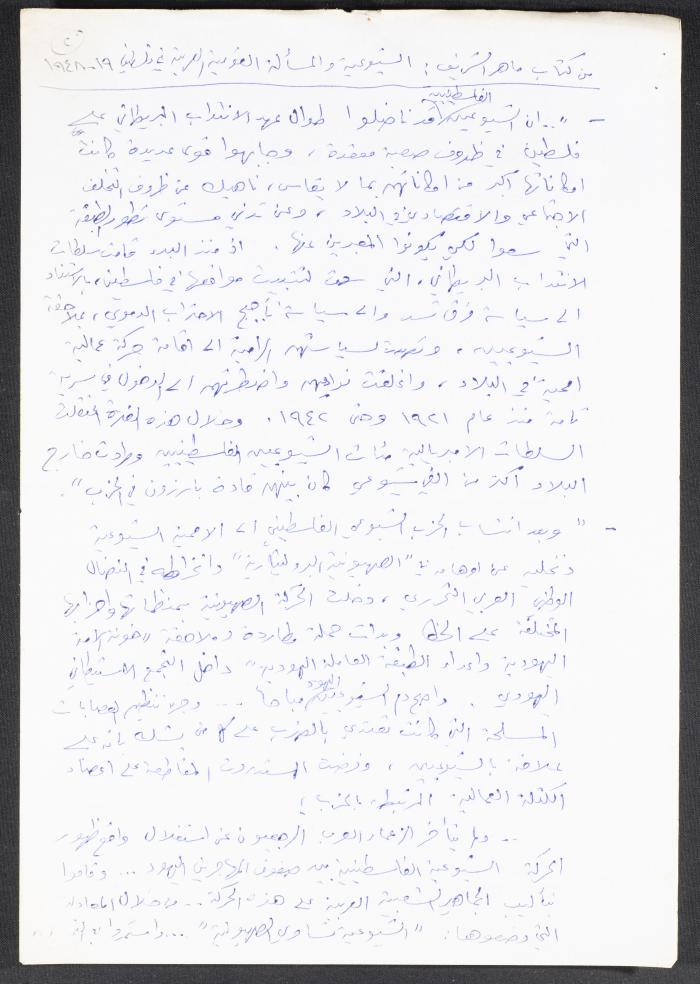 من كتاب ماهر الشريف: الشيوعية والمسألة القومية العربية في فلسطين ١٩ - ١٩٤٨
- "..ان الشيوعيين الفلسطينيين قد ناضلوا طوال عهد الانتداب البريطاني على
فلسطين في ظروف صعبة معقدة، وجابهوا قوى عديدة كانت
امكاناتها اكبر من امكاناتهم بما لا يقاس، ناهيك عن ظروف التخلف
الاجتماعي والاقتصادي في البلاد، وعن تدني مستوى تطور الطبقة
التي سعوا لكي يكونوا المعبرين عنها. اذ منذ البدء قامت سلطات
الانتداب البريطاني، التي سعت لتثبيت مواقعها في فلسطين، بالاستناد
الى سياسة فرق تسد والى سياسة تأجيج الاحتراب الدموي، بملاحقة
الشيوعيين، وتصدت لسياستهم الرامية الى اقامة حركة عمالية
اممية في البلاد، واغلقت نواديهم واضطرتهم الى الدخول في سرية
تامة منذ عام ١٩٢١ وحتى ١٩٤٢. وخلال هذه الفترة اعتقلت
السلطات الامبريالية مئات الشيوعيين الفلسطينيين وطردت خارج
البلاد اكثر من الفي شيوعي كان بينهم قادة بارزون في الحزب".
- "وبعد انتساب الحزب الشيوعي الفلسطيني الى الاممية الشيوعية
وتخليه عن اوهامه في "الصهيونية البروليتارية" وانخراطه في النضال
الوطني العربي التحرري، دخلت الحركة الصهيونية بمنظماتها واحزابها
المختلفة على الخط وبدأت حملة مطاردة وملاحقة "لخونة الامة
اليهودية واعداء الطبقة العاملة اليهودية" داخل التجمع الاستيطاني
اليهودي. واصبح دم الشيوعيين اليهود مباحا ... وجرى تنظيم العصابات
المسلحة التي كانت تعتدي بالضرب على كل من يشك بانه على
علاقة بالشيوعيين، وفرضت الهستدروت المقاطعة على اعضاء
الكتلة العمالية المرتبطة بالحزب؛
.. ولم يتأخر الزعماء العرب الرجعيون عن استغلال واقع ظهور
الحركة الشيوعية الفلسطينية بين صفوف المهاجرين اليهود ... وقاموا
بتأليب الجماهير الشعبية العربية على هذه الحركة .. من خلال المعادلة
التي وضعوها: "الشيوعية تساوي الصهيونية" ... واستمروا